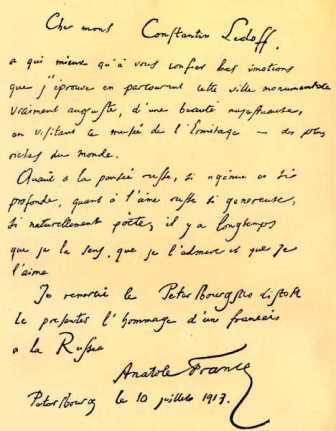 Cher mons Constantin Ledoff,
a qui mieux qu'à vous confier les émotions
que j'éprouve en parcourant cette ville monumentale
vraiment auguste, d'une beauté majestueuse,
en visitant le musée de l'Ermitage — des plus
riches du monde.
Quant à la pensée russe, si ingénue et si
profonde, quant à l'âme russe si généreuse,
si naturellement poète, il y a longtemps
que je la sens, que je l'admire et que je
l'aime
Je remercie le Petersbourgsko Listok
de présenter l'hommage d'un français
a la Russie
Anatole France
Petersbourg le 10 juillet 1913.